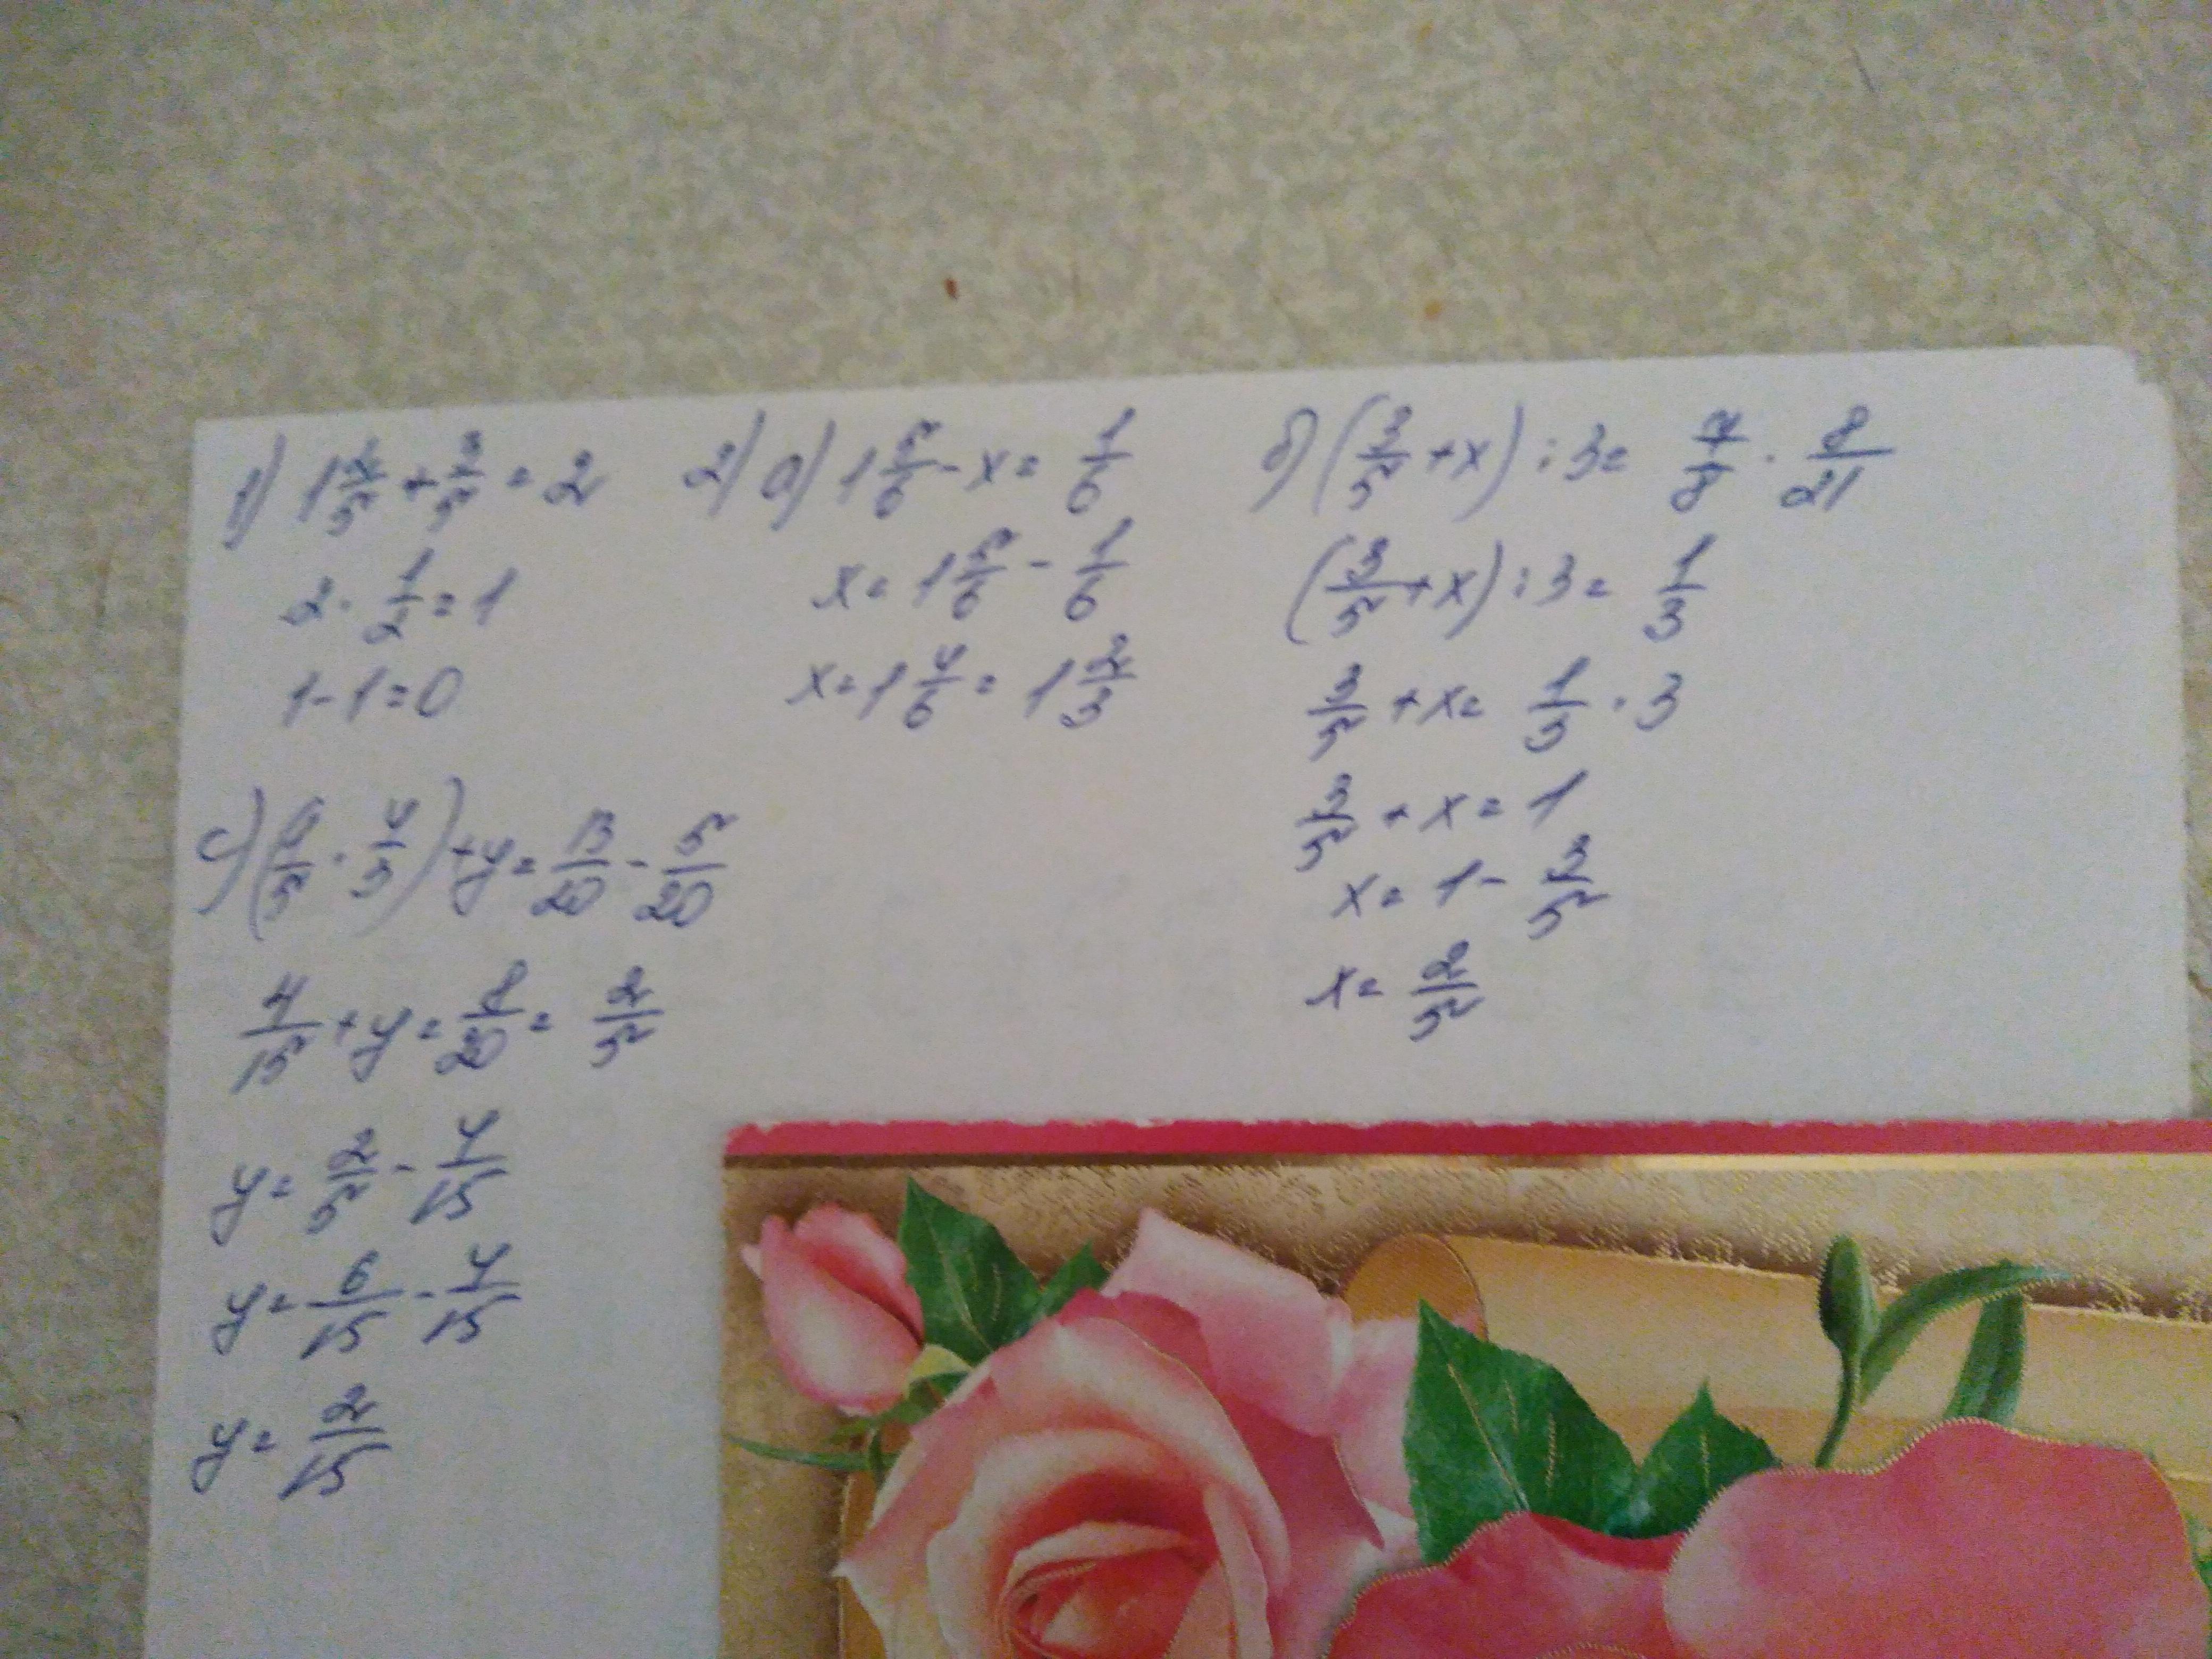 1) 1 2/5 + 3/5 = 2
2 · 1/2 = 1
1 - 1 = 0
2) а) 1 5/6 - x = 1/6
x = 1 5/6 - 1/6
x = 1 4/6 = 1 2/3
б) (3/5 + x) : 3 = 7/8 · 8/21
(3/5 + x) : 3 = 1/3
3/5 + x = 1/3 · 3
3/5 + x = 1
x = 1 - 3/5
x = 2/5
+ y = 13/20 - 5/20
4/15 + y = 8/20 = 2/5
y = 2/5 - 4/15
y = 6/15 - 4/15
y = 2/15